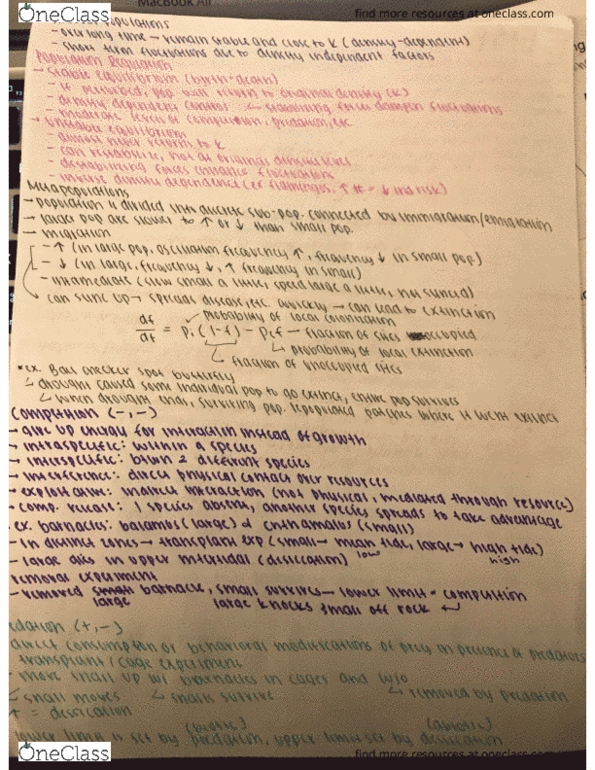 MacBook Air
find more resources at oneclass.com
OneClass
populations
- over long time → remain stable and close to K (density-dependent)
- short term fluctuations due to density independent factors
Population Regulation
- stable equilibrium (birth=death)
- if perturbed, pop will return to original density (K)
- density dependent control ← stabilizing forces dampen fluctuations
- moderate levels of competition, predation, etc
→ unstable equilibrium
- almost never returns to K
- can restabilize, not at original density levels
- destabilizing forces enhance fluctuations
- inverse density dependence (ex flamingos, ↑ # = ↓ ind risk)
Metapopulations
→ population is divided into discrete sub-pop. connected by immigration/emigration
- large pop are slower to ↑ or ↓ than small pop.
- migration
- ↑ (in large pop, oscillation frequency ↑, frequency ↓ in small pop)
- ↓ (in large, frequency ↓, ↑ frequency in small)
- intermediate (slow small a little, speed large a little, not synced)
can sync up → spreads disease, etc. quickly → can lead to extinction
probability of local colonization
df/dt = Pi (1-f) - Pef → fraction of sites occupied
↳ probability of local extinction
↳ fraction of unoccupied sites
*ex. Bay checker spot butterfly
↳ drought caused some individual pop to go extinct, entire pop survives
↳ when drought ends, surviving pop. repopulated patches where it went extinct
Competition (-,-)
→ give up energy for interaction instead of growth
- intraspecific: within a species
- interspecific: btwn 2 different species
- interference: direct physical contact over resources
- exploitative: indirect interaction (not physical, mediated through resource)
- comp. release: 1 species absent, another species spreads to take advantage
ex. barnacles: balamos (large) & chthamallus (small)
- in distinct zones → transplant exp (small → mean tide, large → high tide)
low high
- large dies in upper intertidal (desiccation)
removal experiment
- removed small barnacle, small survives → lower limit = competition
large large knocks small off rock
edation (+,-)
direct consumption or behavioral modifications of prey in presence of predators
transplant / cage experiment
- move snail up w/ barnacles in cages and w/o
↳ snail moves ↳ snails survive ↳ removed by predation
↑ = dessication
(biotic) (abiotic)
lower limit is set by predation, upper limit set by dessication
OneClass
find more resources at oneclass.com